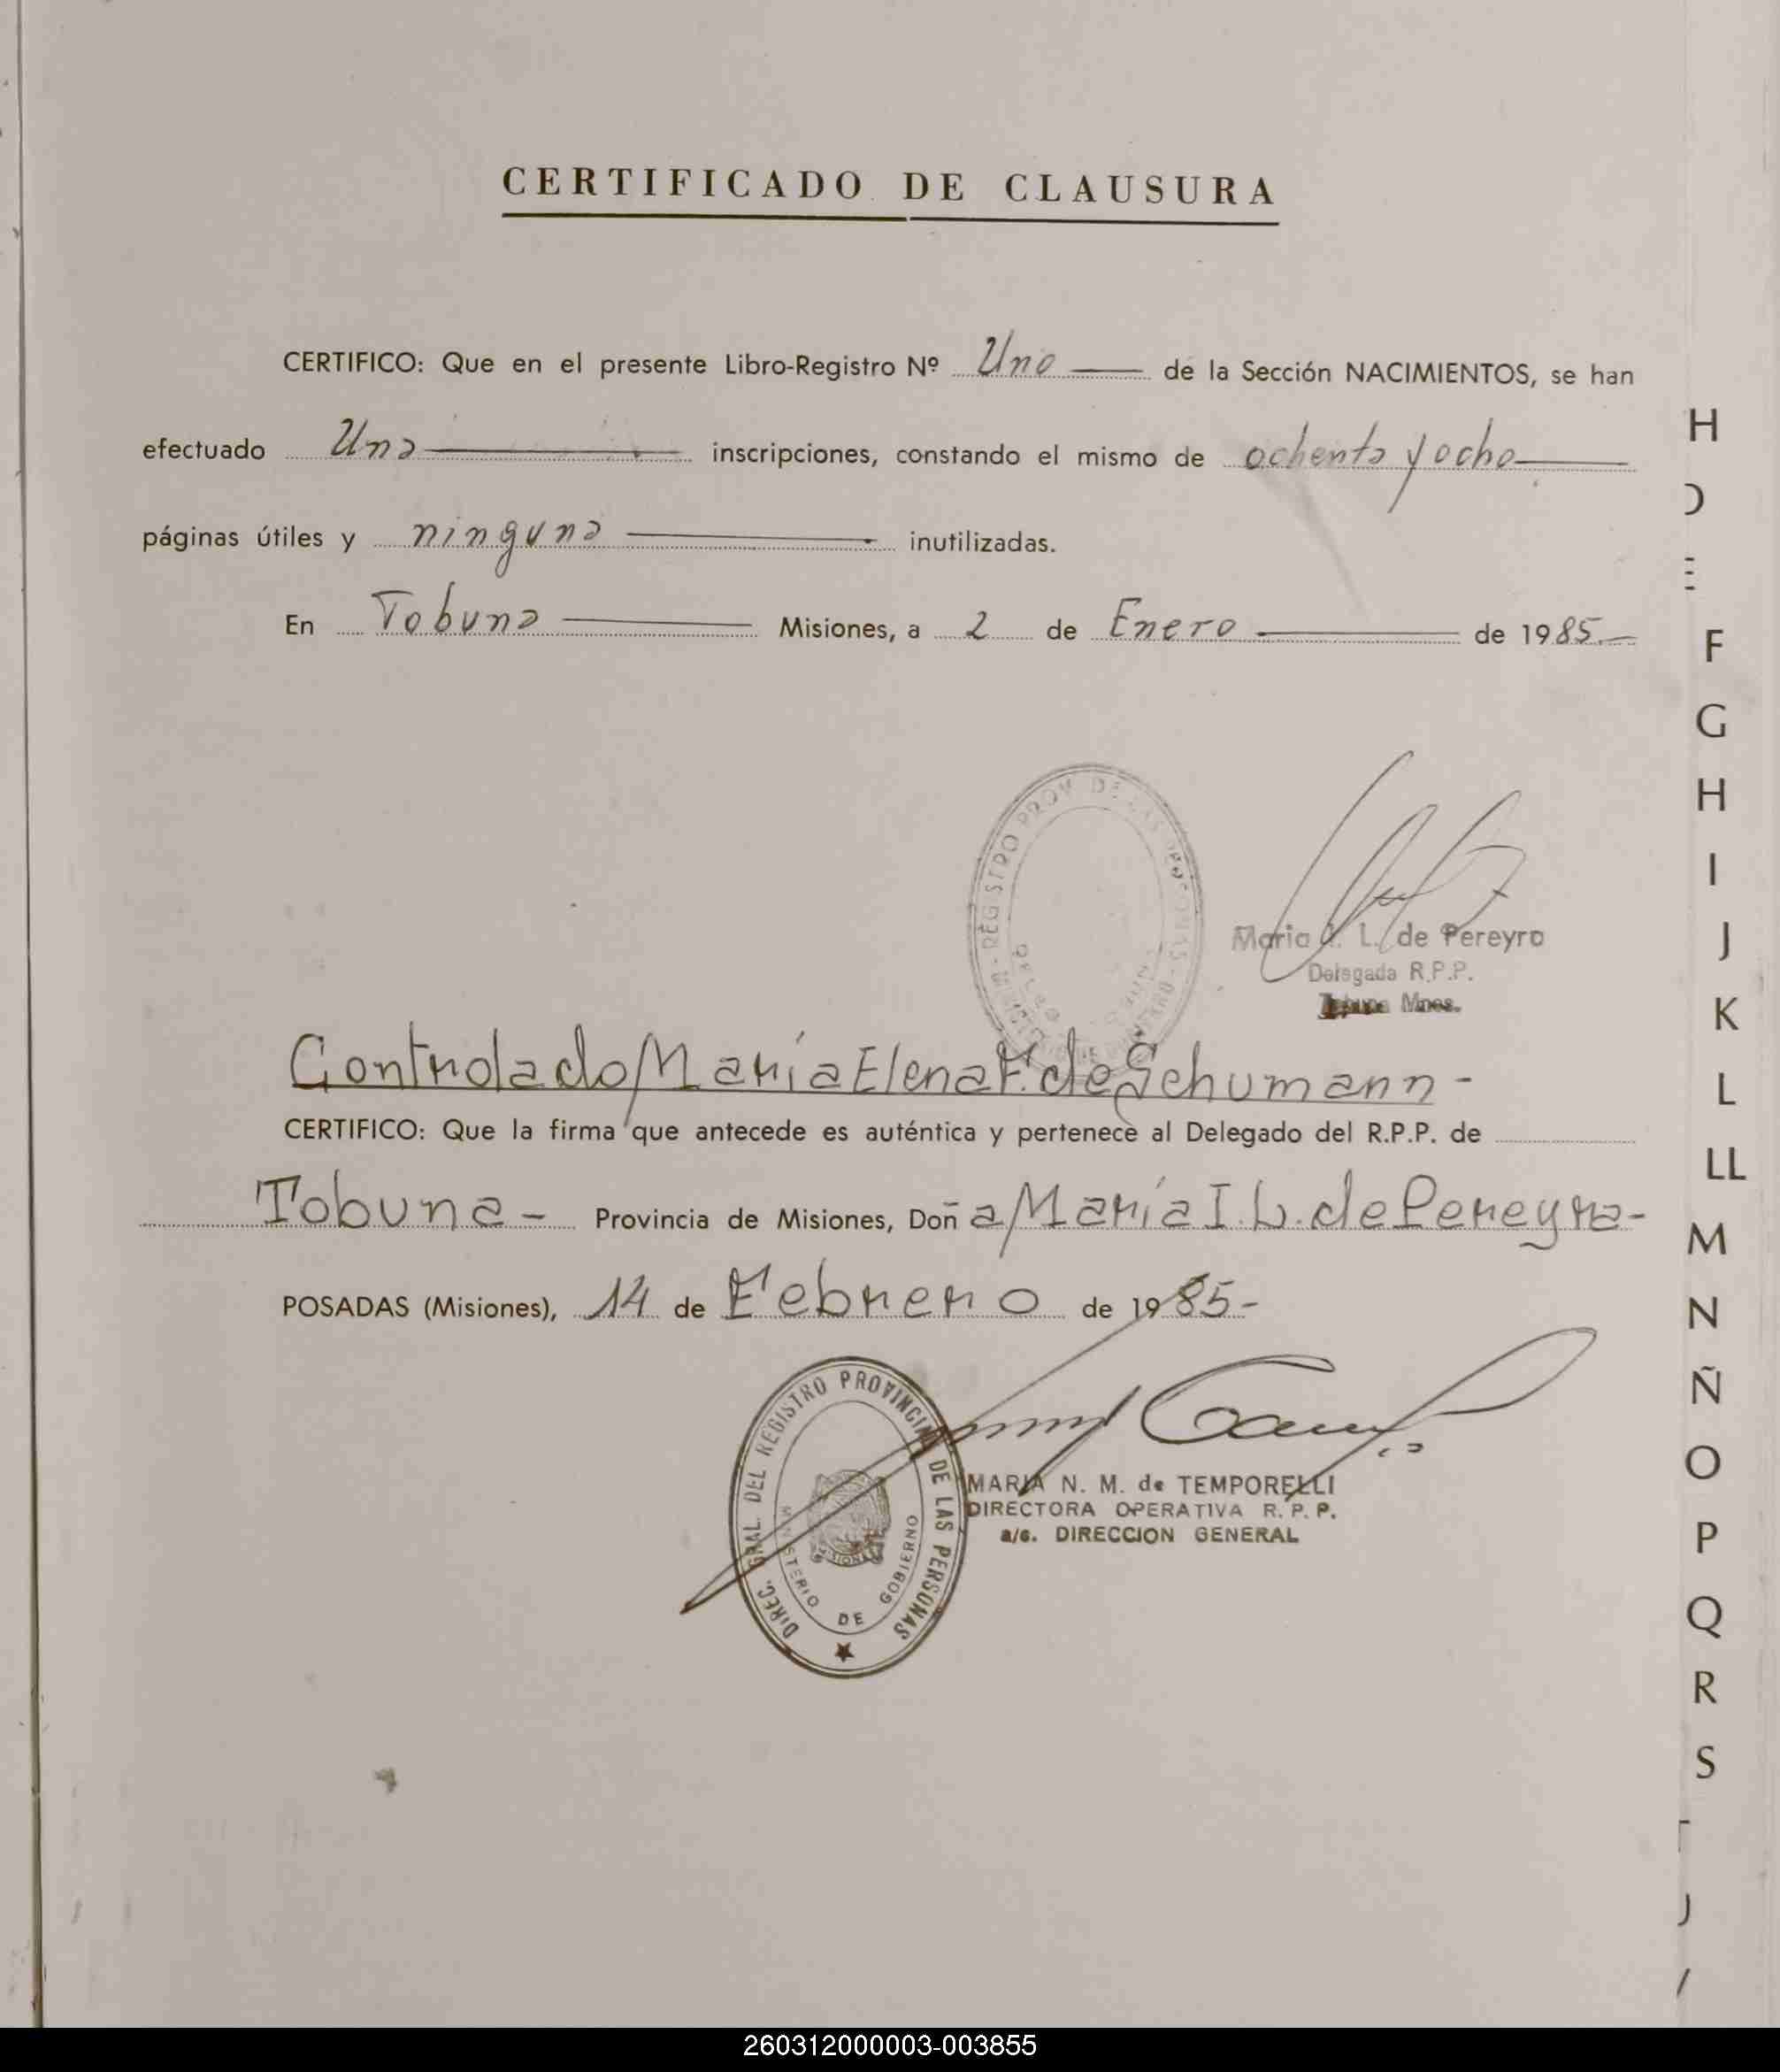 CERTIFICADO DE CLAUSURA
CERTIFICO: Que en el presente Libro-Registro Nº Uno de la Sección NACIMIENTOS, se han
efectuado Una inscripciones, constando el mismo de ochenta y ocho
páginas útiles y ninguna inutilizadas.
En Tobuna Misiones, a 2 de Enero de 1985.-
REGISTRO PROV. DE LAS PERSONAS
Maria I. L. de Pereyra
Delegada R.P.P.
Tobuna Mnes.
Controlado María Elena F. de Schumann -
CERTIFICO: Que la firma que antecede es auténtica y pertenece al Delegado del R.P.P. de
Tobuna - Provincia de Misiones, Doña María I. L. de Pereyra-
POSADAS (Misiones), 14 de Febrero de 1985-
DIREC. GRAL. DEL REGISTRO PROVINCIAL DE LAS PERSONAS
MINISTERIO DE GOBIERNO
MISIONES
MARIA N. M. de TEMPORELLI
DIRECTORA OPERATIVA R. P. P.
a/c. DIRECCION GENERAL
H
F
G
H
I
J
K
L
LL
M
N
Ñ
O
P
Q
R
S
260312000003-003855